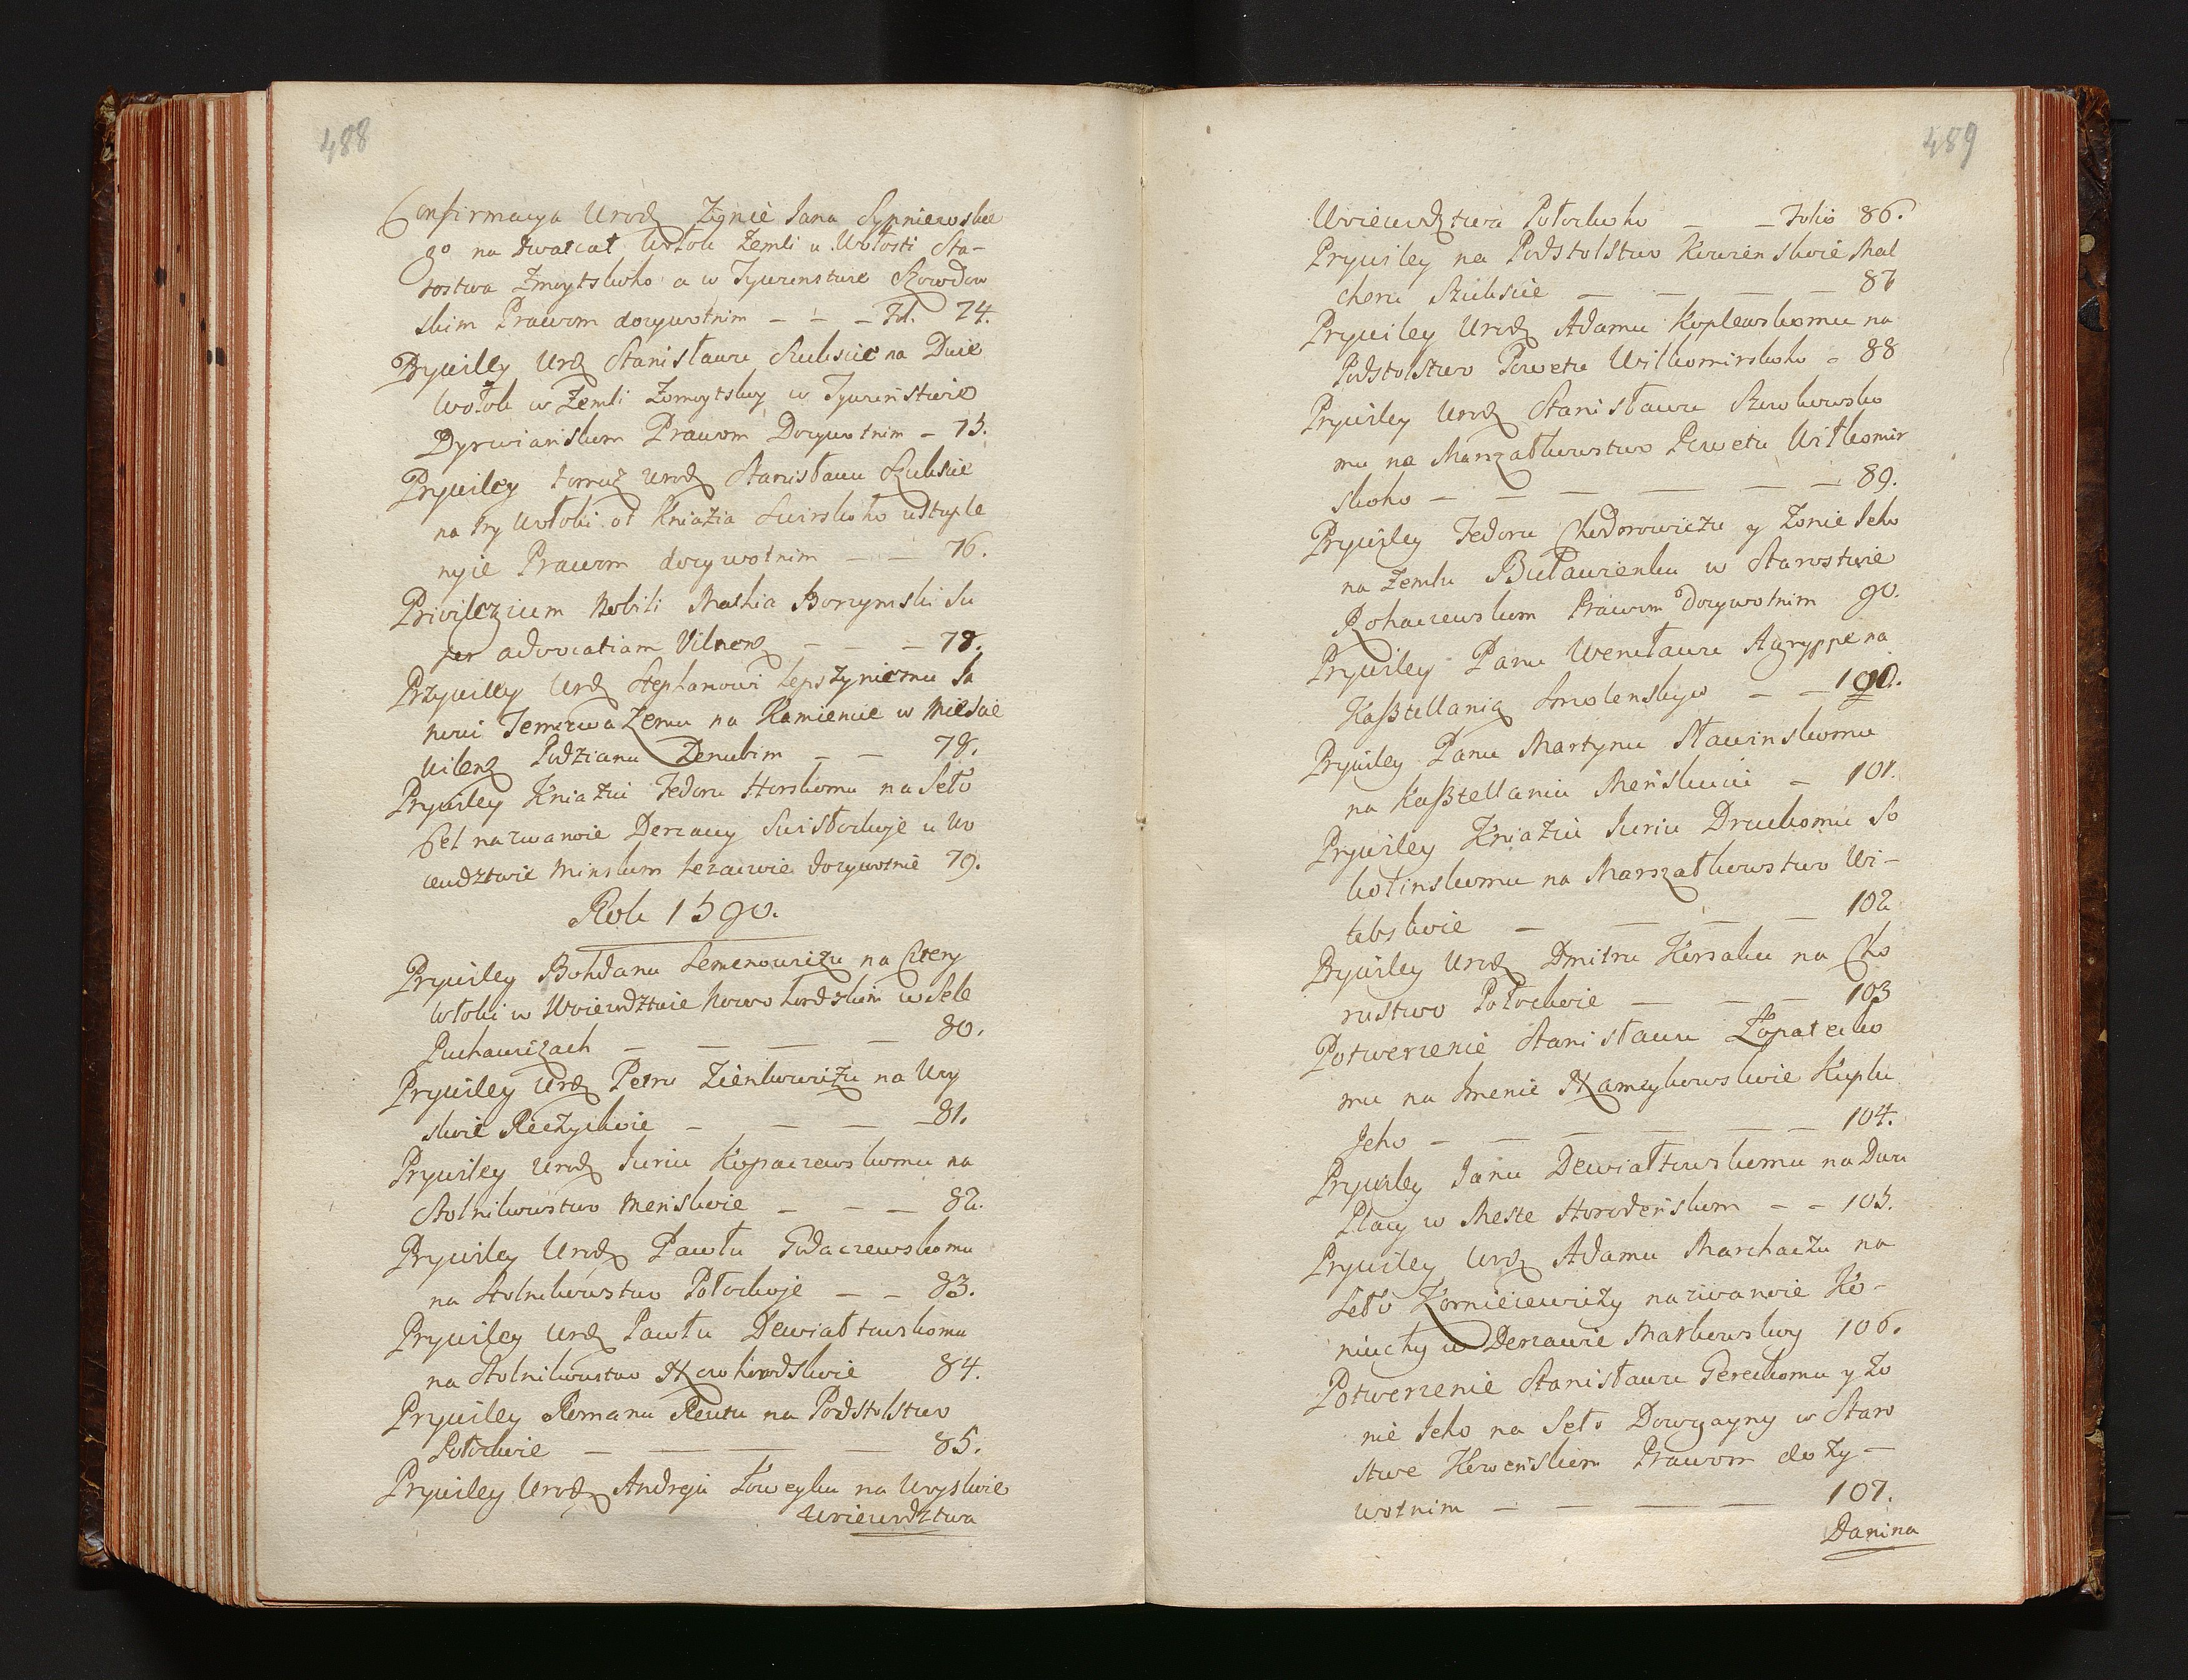 488
Confirmacya Urodz Zignie Jana Sypniewskie
go na dwatcat Wołok Zemli u Wołosti Sta-
rostwa Zmoytskoho a w Tywunstwe Szowdow
skim Prawom dozywotnim - - - Fol. 74.
Prywilley Urdz Stanisławu Szukscie na Dwie
Wołok w Zemli Zomoytskoy w Tywuństwie
Dyrwiańskom Prawom Dozywotnim - 75.
Prywiley tomuż Urodz Stanisławu Szukscie
na try Wołoki ot Kniazia Swirskoho ustuple
nyie Prawom dozywotnim - - 76.
Privilegium Nobili Mathia Borzymski Su
per advocatiam Vilnens - - - 78.
Przywilley Urdz Stephanowi Lepszyniemu Sa
nowi Temrewazemu na Kamienice w Mieście
Wilens Podzianu Denubim - - 78.
Prywiley Kniaziu Fedoru Horskomu na Seło
Bel nazwanoie Derzawy Swisłockoje u Wo
iewdztwie Minskom lezaczoie dozywotnie 79.
Rok 1590.
Prywiley Bohdanu Semenowiczu na Cztery
Włoki w Woiewodztwie Nowohorodskim w Sele
Puchawiczach - - - - 80.
Prywiley Urdz Petru Zienkowiczu na Woy
skie Reczyckoie - - - - 81.
Prywiley Urodz Juriu Kopaczewskomu na
Stolnikowstwo Menskoie - - - 82.
Prywiley Urodz Pawłu Godaczewskomu
na Stolnikowstwo Połockoje - - 83.
Prywiley Urdz Pawłu Dewiałtowskomu
na Stolnikowstwo Nowohorodskoie 84.
Prywiley Romanu Reutu na Podstolstwo
Połockoie - - - 85.
Prywiley Urodz Andreju Łoweyku na Woyskoie
Woiewodztwa
489
Woiewodztwa Połockoho - - Folio 86.
Prywiley na Podstolstwo Kowienskoie Mal
cheru Szukscie - - - - 87
Prywiley Urodz Adamu Koplewskomu na
Podstolstwo Powetu Wilkomirskoho - 88
Prywiley Urodz Stanisławu Szowkowsko
mu na Marszałkowstwo Powetu Wiłkomir
skoho - - - - - - 89.
Prywiley Fedoru Chodorowiczu y Zonie Jeho
na Zemlu Buławienku w Starostwie
Rohaczewskom Prawom Dozywotnim 90.
Prywiley Panu Wencławu Agryppe na
Kasztellanią Smolenskuju - - 100.
Prywiley Panu Martynu Stawinskomu
na Kasztellaniu Meńskuiu - 101.
Prywiley Kniaziu Juriu Druckomu So
kolinskomu na Marszałkowstwo Wi-
tebskoie - - - - 102
Prywiley Urodz Dmitru Korsaku na Cho
rustwo Połockoie - - - 103
Potwerzenie Stanisławu Łopatecko
mu na Imenie Hamzykowskoie Kuplu
Jeho - - - - - - 104.
Prywiley Janu Dewiałtowskomu na Dwu
Placy w Meste Horodeńskom - - 105.
Prywiley Urdz Adamu Marchaczu na
Seło Korniieiewiczy nazwanoie Ko-
niuchy w Derzawie Markowskoy 106.
Potwerzenie Stanisławu Gereckomu y Zo
nie Jeho na Seło Dowgayny w Staro
stwe Kowenskiem Prawom doży-
wotnim - - - - 107.
Danina